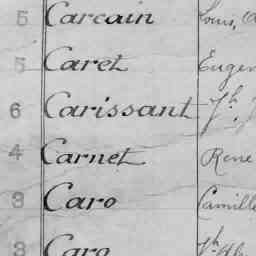 5 Carcain Louis,
5 Caret Eugen
6 Carissant Jh.
4 Carnet Rene
8 Caro Camille
8 Caro Jh.